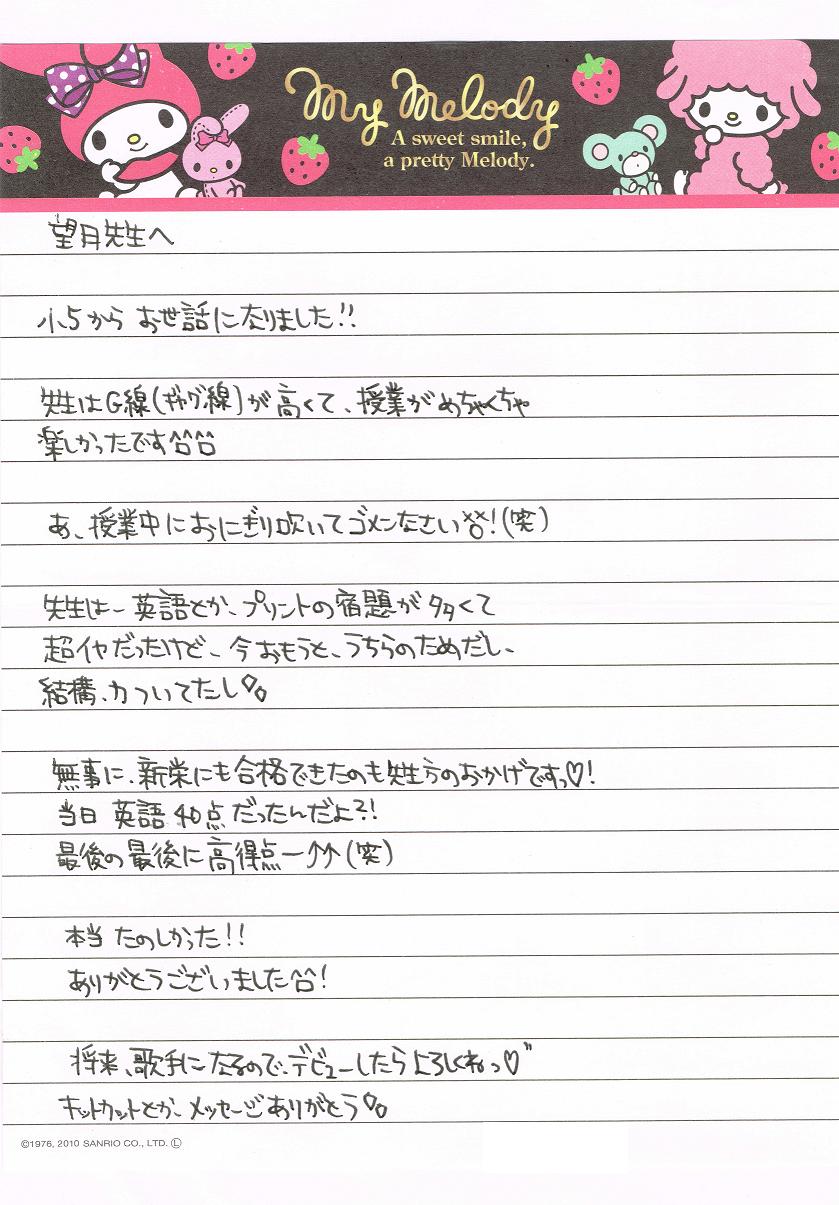 My Melody
A sweet smile,
a pretty Melody.
望月先生へ
小5から お世話になりました!!
先生はG線(ギャグ線)が高くて、授業がめちゃくちゃ
楽しかったです^^
あ、授業中におにぎり吹いてゴメンなさい××!(笑)
先生は、英語とか、プリントの宿題が多くて
超イヤだったけど、今おもうと、うちらのためだし、
結構、力ついてたし
無事に、新栄にも合格できたのも先生方のおかげですっ♡!
当日 英語 40点だったんだよ?!
最後の最後に高得点ー↑↑(笑)
本当 たのしかった!!
ありがとうございました^^!
将来、歌手になるので、デビューしたらよろしくねっ♡"
キットカットとか、メッセージありがとう
©1976, 2010 SANRIO CO., LTD. Ⓛ